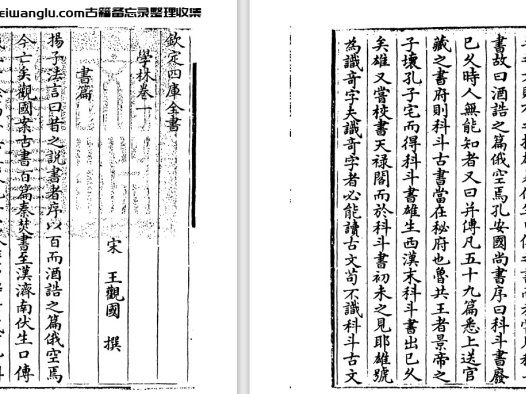 eiwanglu.com古籍备忘录整理收集
欽定四庫全書
學林卷一
宋 王觀國 撰
書篇
揚子法言曰昔之說書者序以百而酒誥之篇俄空焉
今亡矣觀國案古書百篇秦焚書至漢濟南伏生口傳
書故曰酒誥之篇俄空焉孔安國尚書序曰科斗書廢
已久時人無能知者又曰并傳凡五十九篇悉上送官
藏之書府則科斗古書當在秘府也魯共王者景帝之
子壞孔子宅而得科斗書雄生西漢末科斗書出已久
矣雄又嘗校書天禄閣而於科斗書初未之見耶雄號
為識奇字夫識奇字者必能讀古文苟不識科斗古文